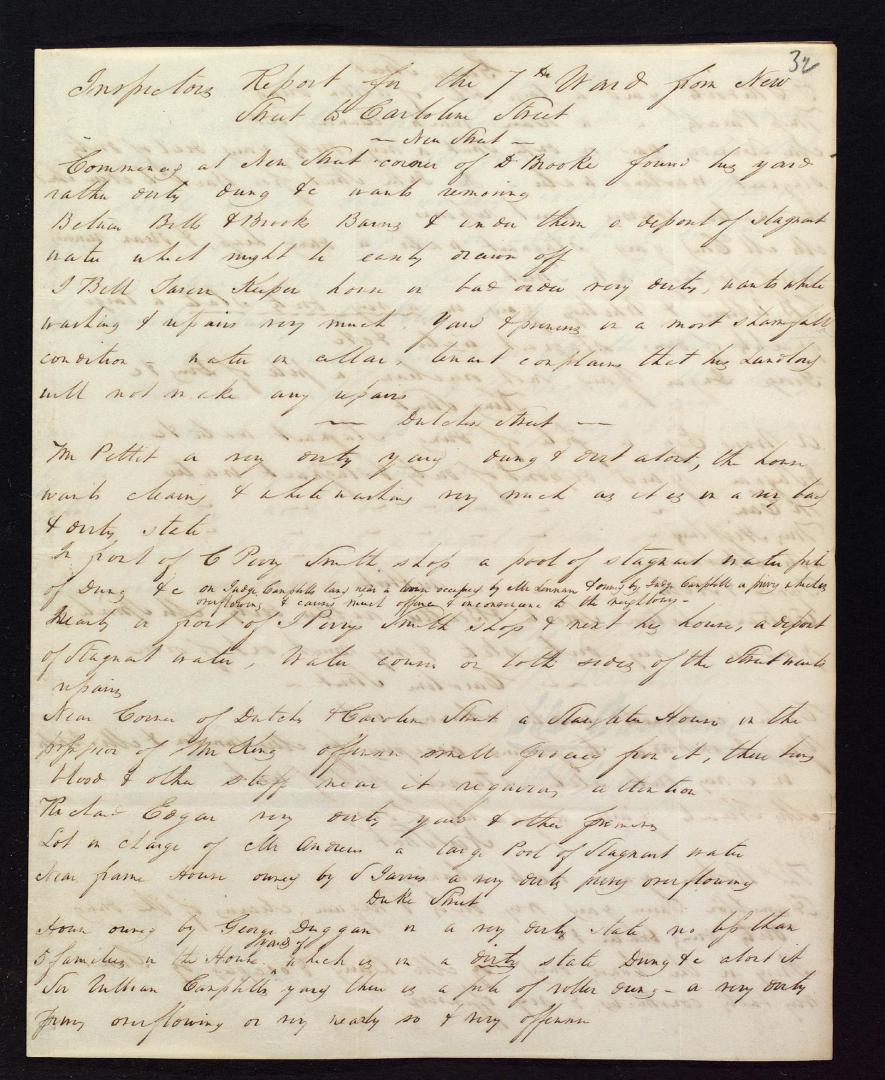 32
Inspectors Report for the 7th Ward from New
Street to Caroline Street
— New Street —
Commencing at New Street corner of D Brooke found his yard
rather dirty dung &c wants removing
Between Bells & Brooks Barns & under them a deposit of stagnant
water which might be easily drawn off
J Bell Tavern Keeper house in bad order very dirty, wants white
washing & repairs very much Yard & premises in a most shamefull
condition water in cellar, tenant complains that his Landlord
will not make any repairs
— Dutchess Street —
Mr Pettit a very dirty yard dung & dirt about, the house
wants cleaning & whitewashing very much as it is in a very bad
& dirty state
In front of C Perry Smith shop a pool of stagnant water pile
of Dung &c on Judge Campbells land near a house occupied by Mr Lennan & owned by Judge Campbell a privy which is
overflowing & causes much offence & inconvenience to the neighbours -
Nearly in front of J Perrys Smith shop & next his house, a deposit
of Stagnant water, Water course on both sides of the Street wants
repairs
Near Corner of Dutchs & Caroline Street a Slaughter House in the
possession of Mr King offensive smell proceeds from it, there being
blood & other stuff near it requires attention
Richard Edgar very dirty yard & other premises
Lot in charge of Mr Andrews a large Pool of Stagnant water
Near frame House owned by S Jarvis a very dirty privy overflowing
Duke Street
House owned by George Duggan in a very dirty state no less than
5 families in the House, yard of which is in a dirty state Dung &c about it
Sir William Campbells yard there is a pile of rotten dung - a very dirty
privy overflowing or very nearly so & very offensive